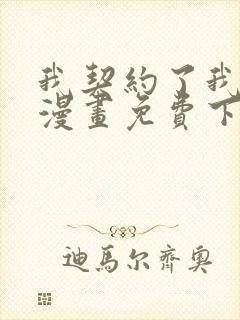 我契約了我
漫畫免費下
迪馬尔齊奥